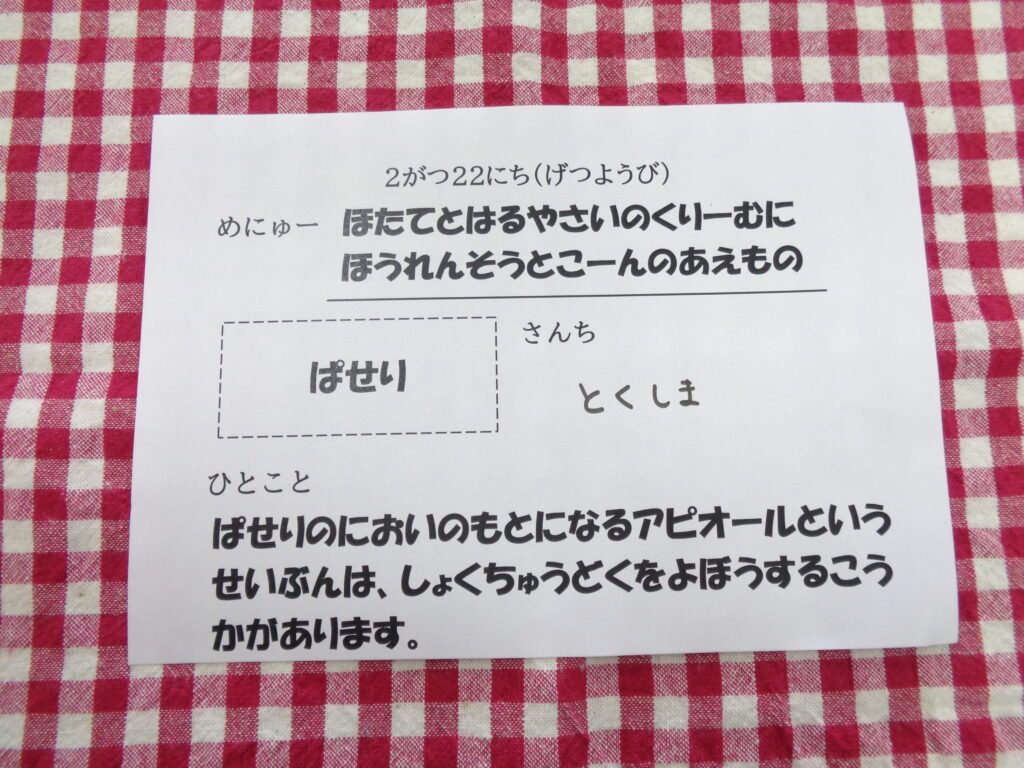 2がつ22にち(げつようび)
めにゅー ほたてとはるやさいのくりーむに
ほうれんそうとこーんのあえもの
さんち
ぱせり
とくしま
ひとこと
ぱせりのにおいのもとになるアピオールという
せいぶんは、しょくちゅうどくをよぼうするこう
かがあります。